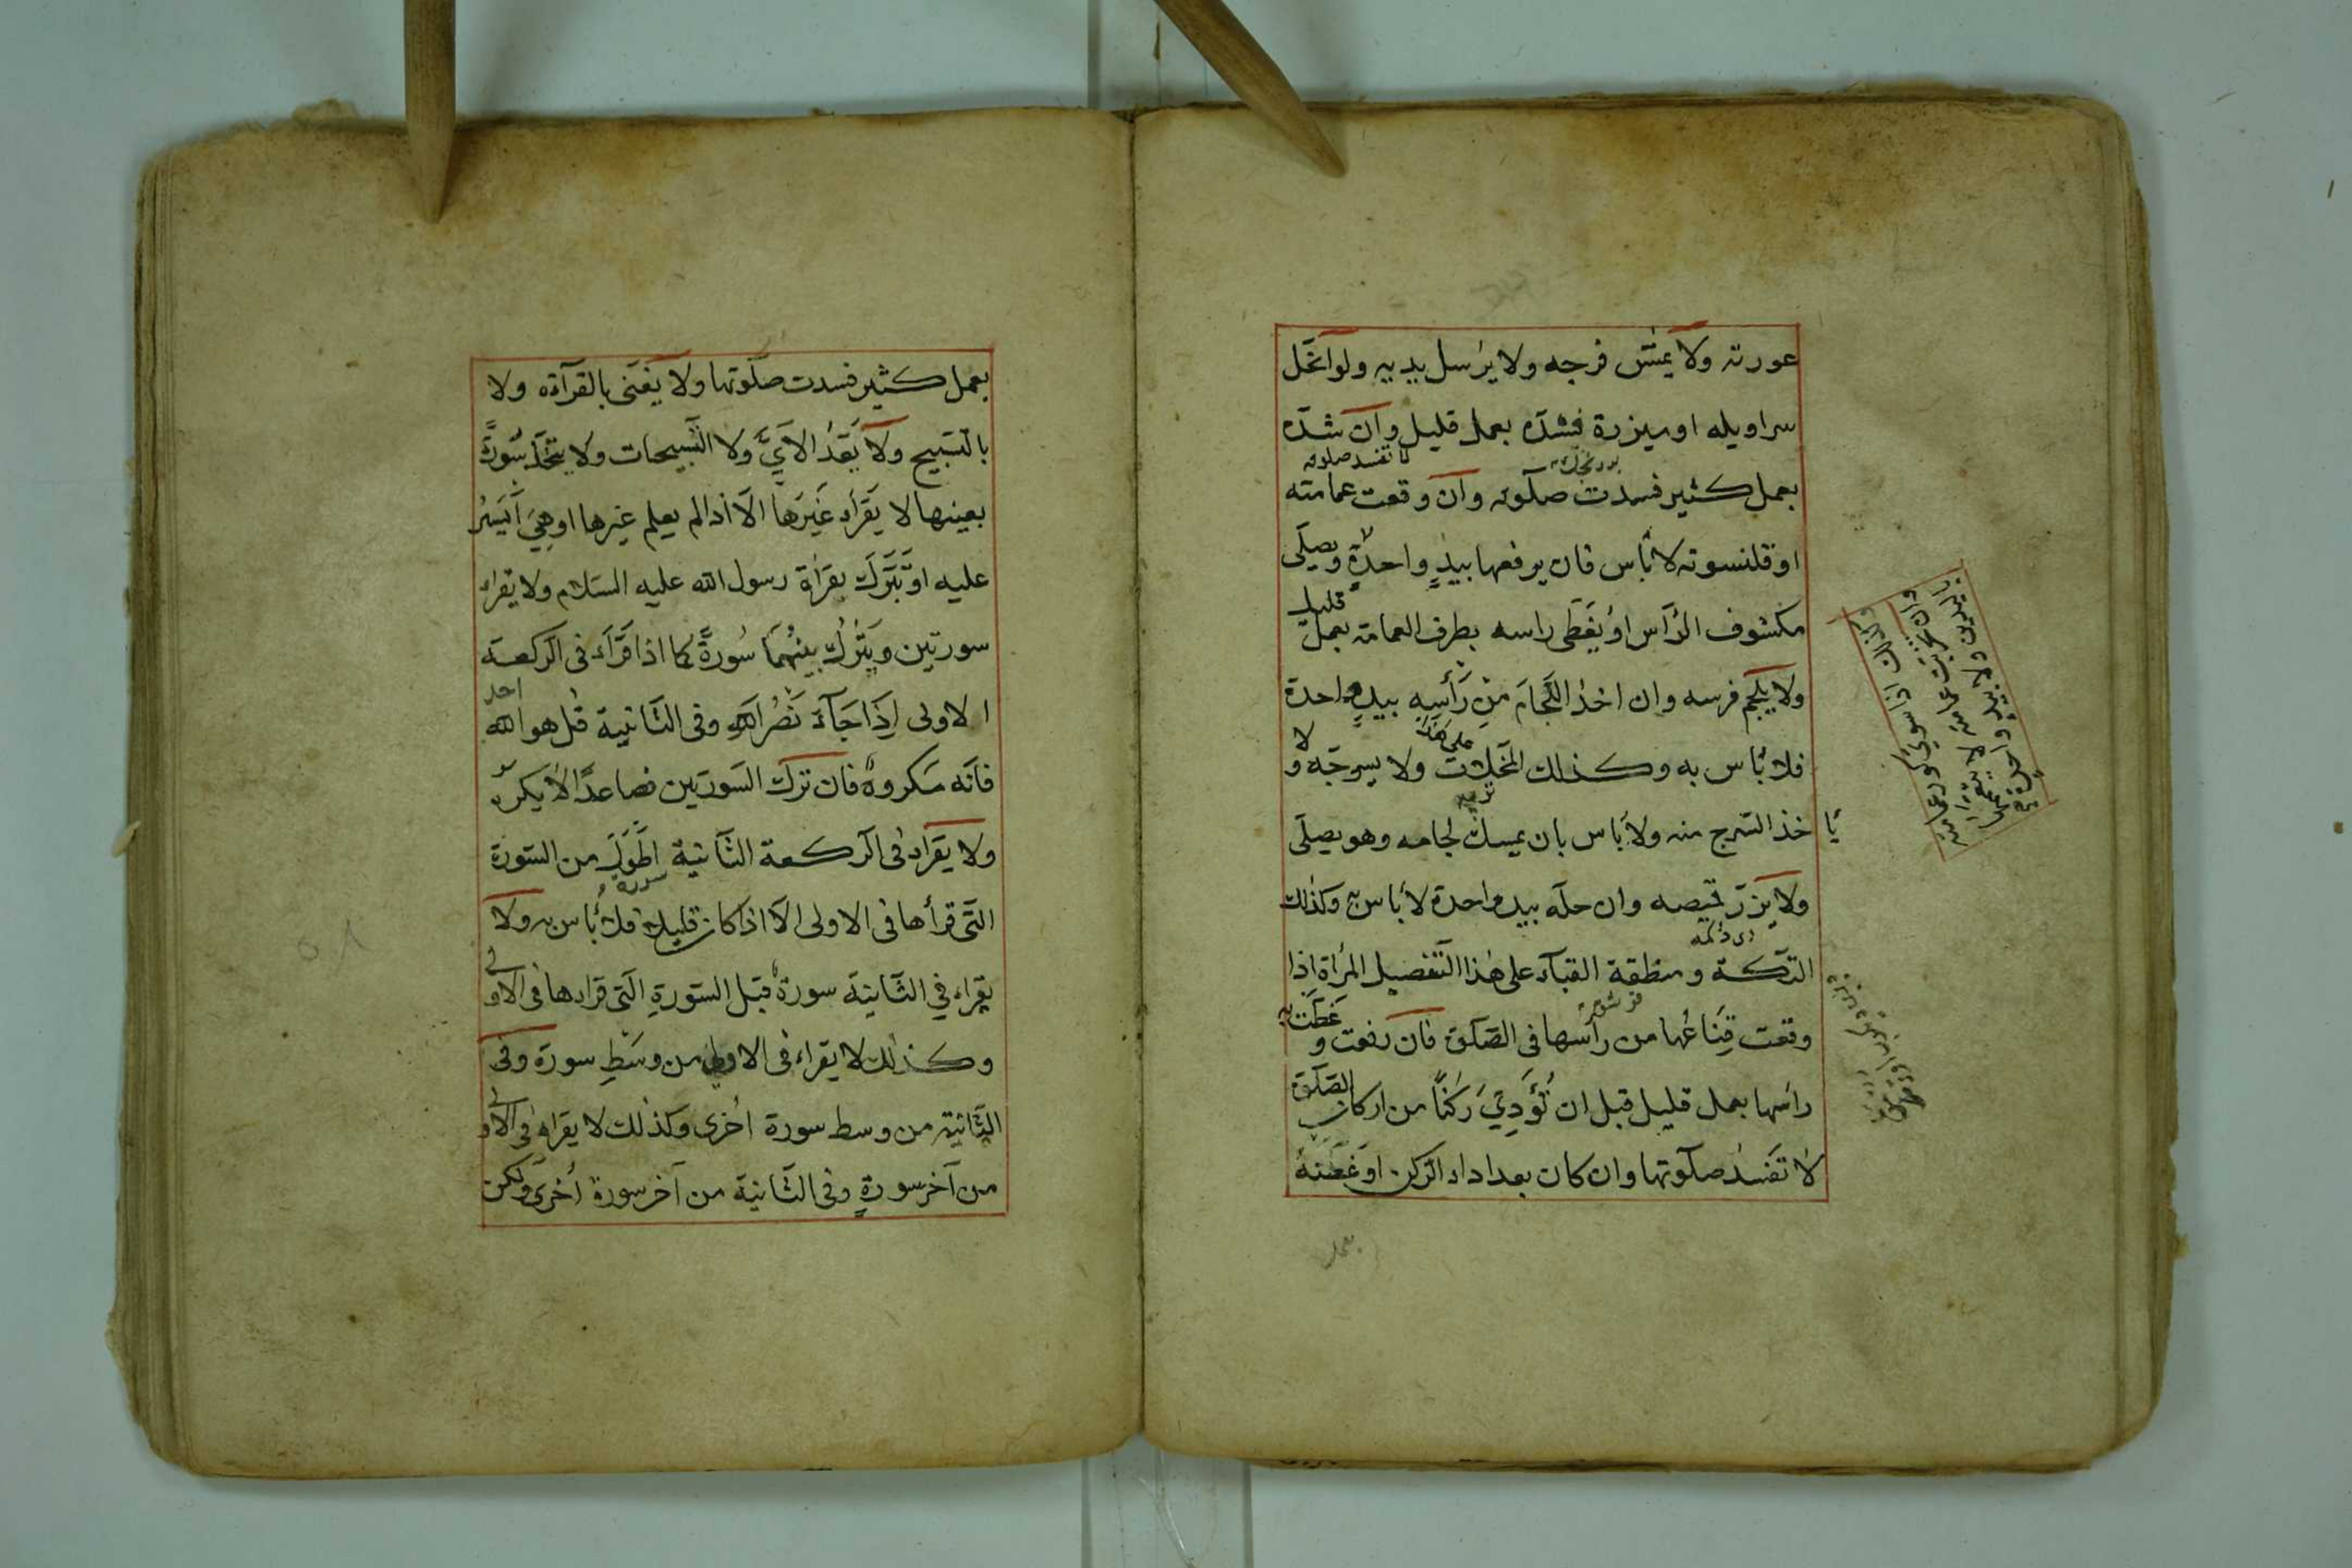 عورته ولا يمسّ فرجه ولا يرسل يديه ولو انحلّ
سراويله او ميزرة فشدّه بعمل قليل وان شدّه
لا تفسد صلوته
بعمل كثير فسدت صلوته وان وقعت عمامته
او قلنسوته لا باس فان يرفعها بيدٍ واحدةٍ ولا يصلّى
مكشوف الرّأس او يُغَطّى راسه بطرف العمامة بعمل قليل
ولا يلجم فرسه وان اخذ اللّجامَ مِنْ رَأْسِهِ بيدٍ واحدة
فلا بأس به وكذلك المخلات ولا يسرجه ولا
يأ خذ السّرج منه ولا بَاس بان يمسك لجامه وهو يصلّى
ولا يزرّ قميصه وان حلّه بيد واحدة لا بأس به وكذلك
التّكة ومنطقة القبآء على هٰذا التّفصيل المرأة اذا
وقعت قِنَاعُها من رأسها فى الصّلوة فان رفعت و غَطّت به
رأسها بعمل قليل قبل ان تُؤَدِّيَ رُكْنًا من اركان الصّلوة
لا تَفْسُد صلوتها وان كان بعد اداء الرّكن او غَطَّتهُ
بعمل
بعمل كثير فسدت صلوتها ولا يغنى بالقرآءة ولا
بالتّسبيح ولا يَعُدُّ الآيَّ ولا التّسبيحات ولا يتّخذ سُورةً
بعينها لا يَقْرَاء غَيْرَها الّا اذا لم يعلم غيرها او هِيَ اَيْسَرُ
عليه او تَبَرُّك بقراة رسول الله عليه السّلام ولا يقراء
سورتين ويَتْرُك بينهُمَا سُورةً كما اذا قَرَاَء فى الرّكعة
الاولى اِذَا جَآءَ نَصْرُ اللهِ وفى الثّانية قُل هو الله احد
فانّه مكروهٌ فان ترك السّورتين فصاعدًا لا يكره
ولا يقراء فى الرّكعة الثّانية اطْوَلَ من السّورة
سورة
التّى قرأها فى الاولى الّا اذا كان قليلا فلا بأس به ولا
يقراء في الثّانية سورة قبل السّورةِ الّتى قراءها فى الاولى
وكذلك لا يقراء فى الاولى من وسَطِ سورة وفى
الثّانية من وسط سورة اُخرى وكذلك لا يقراء فى الاولى
من آخر سورةٍ وفى الثّانية من آخر سورة اُخْرى ولكن